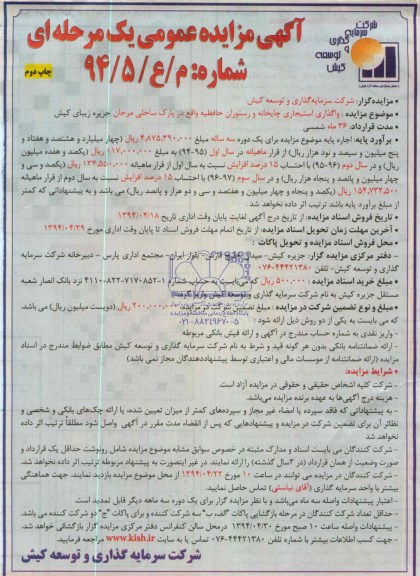 آگهی مزایده عمومی یک مرحله ای
شماره: م/ع/۹۴/۵
چاپ دوم
شرکت
سرمایه
گذاری
و
توسعه
کیش
• مزایده‌گزار: شرکت سرمایه‌گذاری و توسعه کیش
• موضوع مزایده : واگذاری استیجاری چایخانه و رستوران حافظیه واقع در پارک ساحلی مرجان جزیره زیبای کیش
• مدت قرارداد: ۳۶ ماه شمسی
• برآورد پایه: اجاره پایه موضوع مزایده برای یک دوره سه ساله مبلغ ۴,۸۷۵,۳۹۰,۰۰۰ ریال (چهار میلیارد و هشتصد و هفتاد و
پنج میلیون و سیصد و نود هزار ریال) از قرار ماهیانه در سال اول (۹۵-۹۴) به مبلغ ۱۱۷,۰۰۰,۰۰۰ ریال (یکصد و هفده میلیون
ریال) و در سال دوم (۹۶-۹۵) با احتساب ۱۵ درصد افزایش نسبت به سال اول از قرار ماهیانه ۱۳۴,۵۵۰,۰۰۰ ریال (یکصد و سی و
چهار میلیون و پانصد و پنجاه هزار ریال) و در سال سوم (۹۷-۹۶) با احتساب ۱۵ درصد افزایش نسبت به سال دوم از قرار ماهیانه
۱۵۴,۷۳۲,۵۰۰ ریال (یکصد و پنجاه و چهار میلیون و هفتصد و سی و دو هزار و پانصد ریال) می باشد و به پیشنهاداتی که کمتر
از مبلغ برآورد پایه باشد ترتیب اثر داده نخواهد شد .
• تاریخ فروش اسناد مزایده: از تاریخ درج آگهی لغایت پایان وقت اداری تاریخ ۱۳۹۴/۰۴/۱۸
• آخرین مهلت زمان تحویل اسناد مزایده: از تاریخ اتمام مهلت فروش اسناد تا پایان وقت اداری مورخ ۱۳۹۴/۰۴/۲۹
• محل فروش اسناد مزایده و تحویل پاکات :
- دفتر مرکزی مزایده گزار: جزیره کیش- میدان خلیج فارس- بلوار ایران- مجتمع اداری پارس - دبیرخانه شرکت سرمایه
گذاری و توسعه کیش- تلفن ۰۷۶-۴۴۴۲۱۳۸۰
• مبلغ خرید اسناد مزایده : ۵۰۰,۰۰۰ ریال که می بایست به حساب شماره ۴۱۱۰-۸۲۲-۷۱۷۰۸۵۲-۱ نزد بانک انصار شعبه
مستقل جزیره کیش به نام شرکت سرمایه گذاری و توسعه کیش واریز گردد.
• مبلغ و نوع تضمین شرکت در مزایده : مبلغ ۲۰۰,۰۰۰,۰۰۰ ریال (دویست میلیون ریال) می باشد.
که می بایست به یکی از دو روش ذیل ارائه شود :
- واریز نقدی به شماره حساب مندرج در آگهی و ارائه فیش بانکی مربوطه
- ارائه ضمانتنامه بانکی بدون هر گونه قید و شرط به نام شرکت سرمایه گذاری و توسعه کیش مطابق ضوابط مندرج در اسناد
مزایده (ارائه ضمانتنامه از موسسات مالی و اعتباری توسط پیشنهاددهندگان مجاز نمی باشد)
• شرایط مزایده:
- شرکت کلیه اشخاص حقیقی و حقوقی در مزایده آزاد است.
- هزینه درج آگهی‌ها به عهده برنده مزایده می‌باشد.
- به پیشنهاداتی که فاقد سپرده یا امضاء غیر مجاز و سپرده‌های کمتر از میزان تعیین شده، یا ارائه چک‌های بانکی و شخصی و
نظائر آن برای تضمین شرکت در مزایده و پیشنهادهایی که پس از انقضاء مدت مقرر در آگهی واصل شود مطلقاً ترتیب اثر داده
نخواهد شد
- شرکت کنندگان می بایست اسناد و مدارک مثبته در خصوص سوابق مشابه موضوع مزایده شامل رونوشت حداقل یک قرارداد و
صورت وضعیت از همان قرارداد (در ۳سال گذشته) را ارائه نمایند. در غیر اینصورت به پیشنهاد مربوطه ترتیب اثر داده نخواهد شد.
- شرکت کنندگان در مزایده می توانند در ساعت ۱۰ مورخ ۱۳۹۴/۰۴/۲۲ از محل موضوع مزایده بازدید نمایند. جهت هماهنگی
بیشتر با واحد سرمایه گذاری (آقای نیاستی) تماس حاصل نمایید.
- اعتبار پیشنهادات واصله سه ماه می‌باشد و با نظر مزایده گزار برای یک دوره سه ماهه دیگر قابل تمدید است.
- حداقل تعداد شرکت کنندگان در مرحله بازگشایی پاکات "الف، ب" سه شرکت کننده و برای پاکات "ج" دو شرکت کننده می باشد.
- پیشنهادات واصله ساعت ۱۰ صبح مورخ ۱۳۹۴/۰۴/۳۰ در محل سالن کنفرانس دفتر مرکزی مزایده گزار بازگشائی خواهد شد.
- جهت کسب اطلاعات بیشتر با شماره تلفن ۰۷۶-۴۴۴۲۱۳۸۰ تماس یا به سایت www.kish.ir مراجعه فرمایید.
شرکت سرمایه گذاری و توسعه کیش